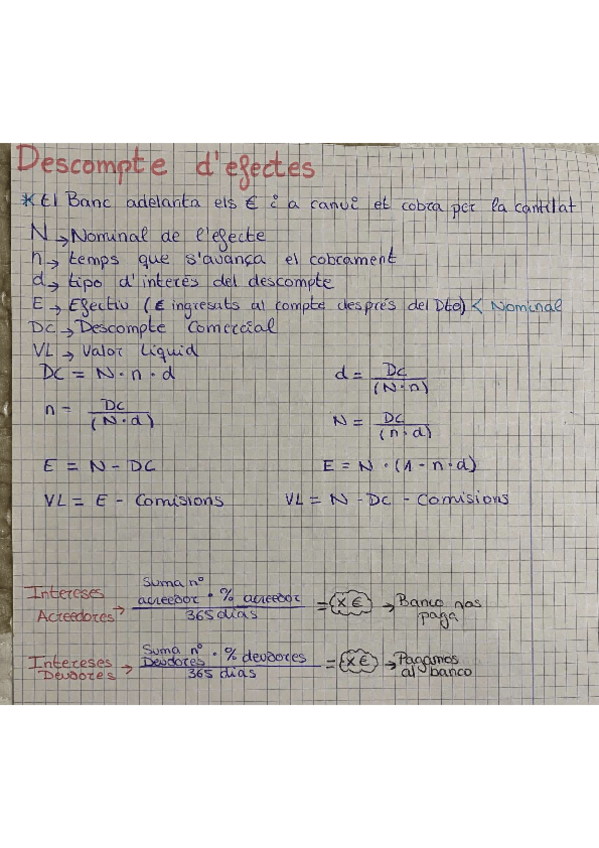 Descompte d'efectes
* El Banc adelanta els € i a canvi et cobra per la cantitat
N → Nominal de l'efecte
n → temps que s'avança el cobrament
d → tipo d'interès del descompte
E → Efectiu (€ ingresats al compte després del Dto) < Nominal
DC → Descompte Comercial
VL → Valor Líquid
DC = N · n · d
d = DC / (N · n)
n = DC / (N · d)
N = DC / (n · d)
E = N - DC
E = N · (1 - n · d)
VL = E - Comisions
VL = N - DC - Comisions
Intereses Acreedores → Suma nº acreedor · % acreedor / 365 días = x € → Banco nos paga
Intereses Deudores → Suma nº Deudores · % deudores / 365 días = x € → Pagamos al banco